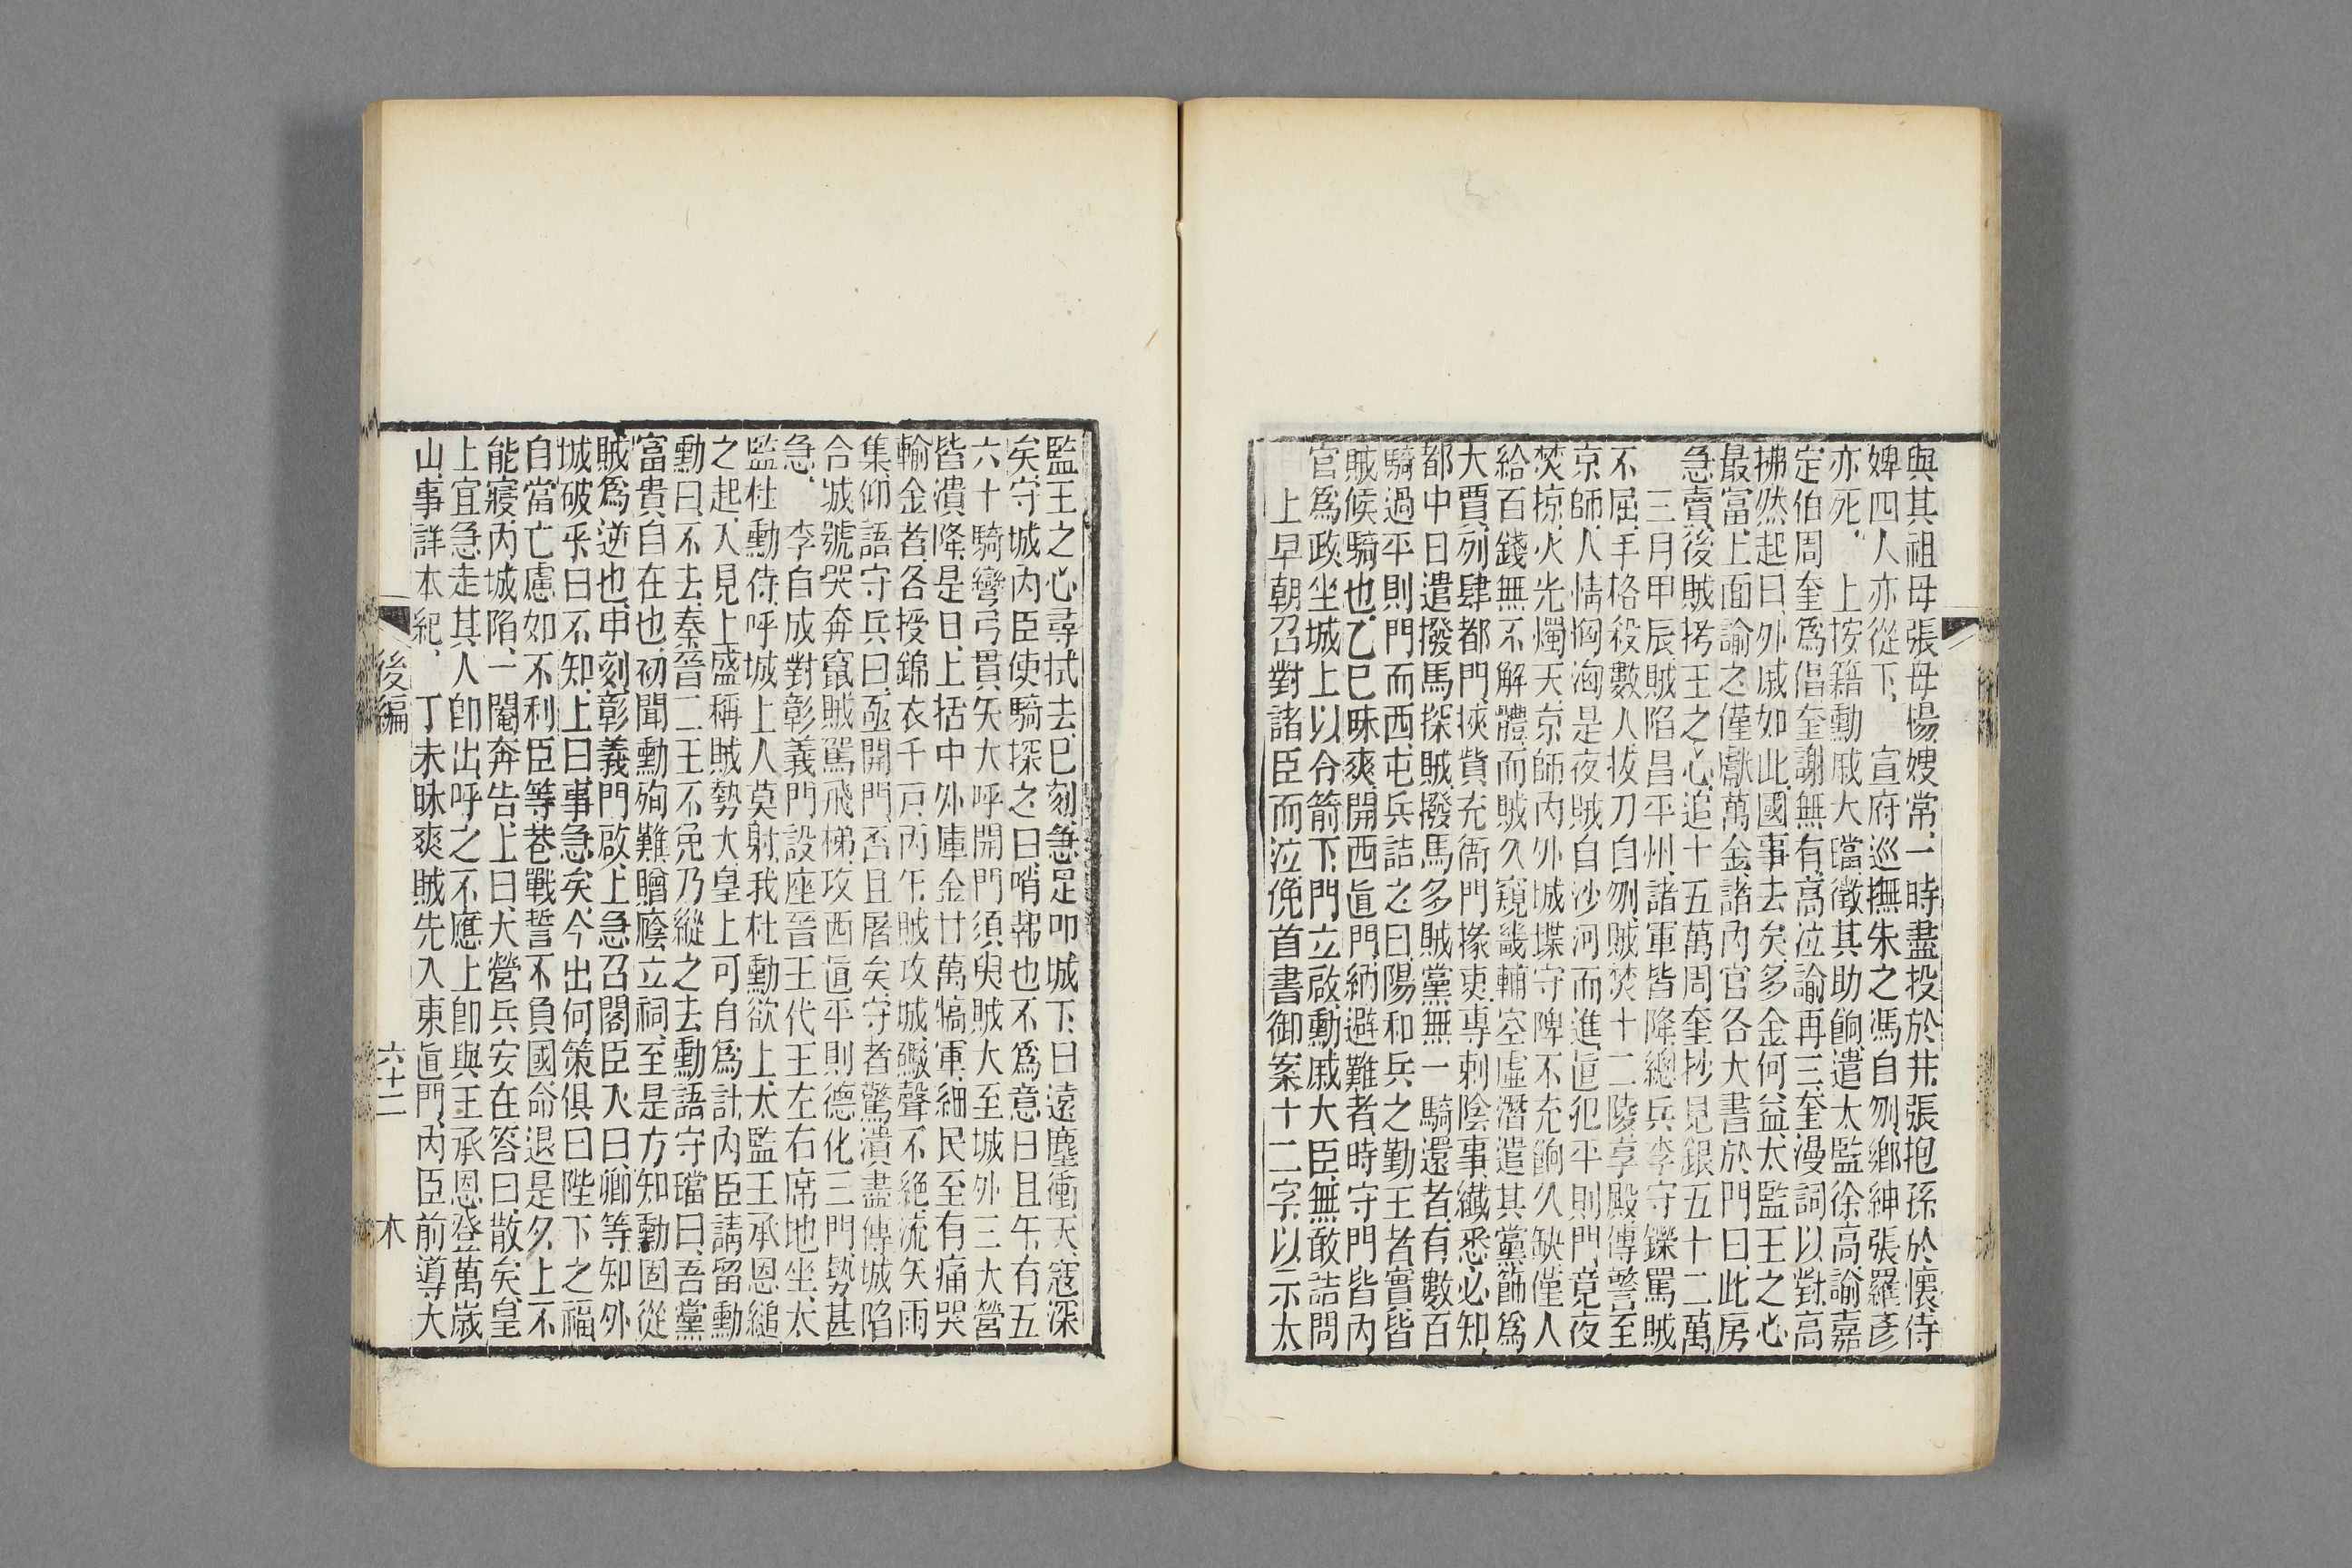 與其祖母張母楊嫂常一時盡投於井張抱孫於懷侍
婢四人亦從下　宣府巡撫朱之馮自刎鄉紳張羅彥
亦死　上按籍勳戚大璫徵其助餉遣太監徐高諭嘉
定伯周奎爲倡奎謝無有高泣諭再三奎漫詞以對高
拂然起曰外戚如此國事去矣多金何益太監王之心
最富上面諭之僅獻萬金諸內官各大書於門曰此房
急賣後賊拷王之心追十五萬周奎抄見銀五十二萬
三月甲辰賊陷昌平州諸軍皆降總兵李守鑅罵賊
不屈手格殺數人拔刀自刎賊焚十二陵享殿傳警至
京師人情恟洶是夜賊自沙河而進直犯平則門竟夜
焚掠火光燭天京師內外城堞守陴不充餉久缺僅人
給百錢無不解體而賊久窺畿輔空虛潛遣其黨飾爲
大賈列肆都門挾貲充衙門掾吏專刺陰事纎悉必知
都中日遣撥馬探賊撥馬多賊黨無一騎還者有數百
騎過平則門而西屯兵詰之曰陽和兵之勤王者實皆
賊候騎也乙巳昧爽開西直門納避難者時守門皆內
官爲政坐城上以令箭下門立啟勳戚大臣無敢詰問
上早朝召對諸臣而泣俛首書御案十二字以示太
監王之心尋拭去巳刻急足叩城下曰遠塵衝天寇深
矣守城內臣使騎探之曰哨報也不爲意日且午有五
六十騎彎弓貫矢大呼開門須臾賊大至城外三大營
皆潰降是日上括中外庫金廿萬犒軍細民至有痛哭
輸金者各授錦衣千戸丙午賊攻城礮聲不絶流矢雨
集仰語守兵曰亟開門否且屠矣守者驚潰盡傳城陷
合城號哭奔竄賊駕飛梯攻西直平則德化三門勢甚
急　李自成對彰義門設座晉王代王左右席地坐太
監杜勳侍呼城上人莫射我杜勳欲上太監王承恩縋
之起入見上盛稱賊勢大皇上可自爲計內臣請留勳
勳曰不去秦晉二王不免乃縱之去勳語守璫曰吾黨
富貴自在也初聞勳殉難贈廕立祠至是方知勳固從
賊爲逆也申刻彰義門啟上急召閣臣入曰卿等知外
城破乎曰不知上曰事急矣今出何策俱曰陛下之福
自當亡慮如不利臣等巷戰誓不負國命退是夕上不
能寢內城陷一閹奔告上曰大營兵安在答曰散矣皇
上宜急走其人卽出呼之不應上卽與王承恩登萬歲
山事詳本紀　丁未昧爽賊先入東直門內臣前導大
後編　六十二　木